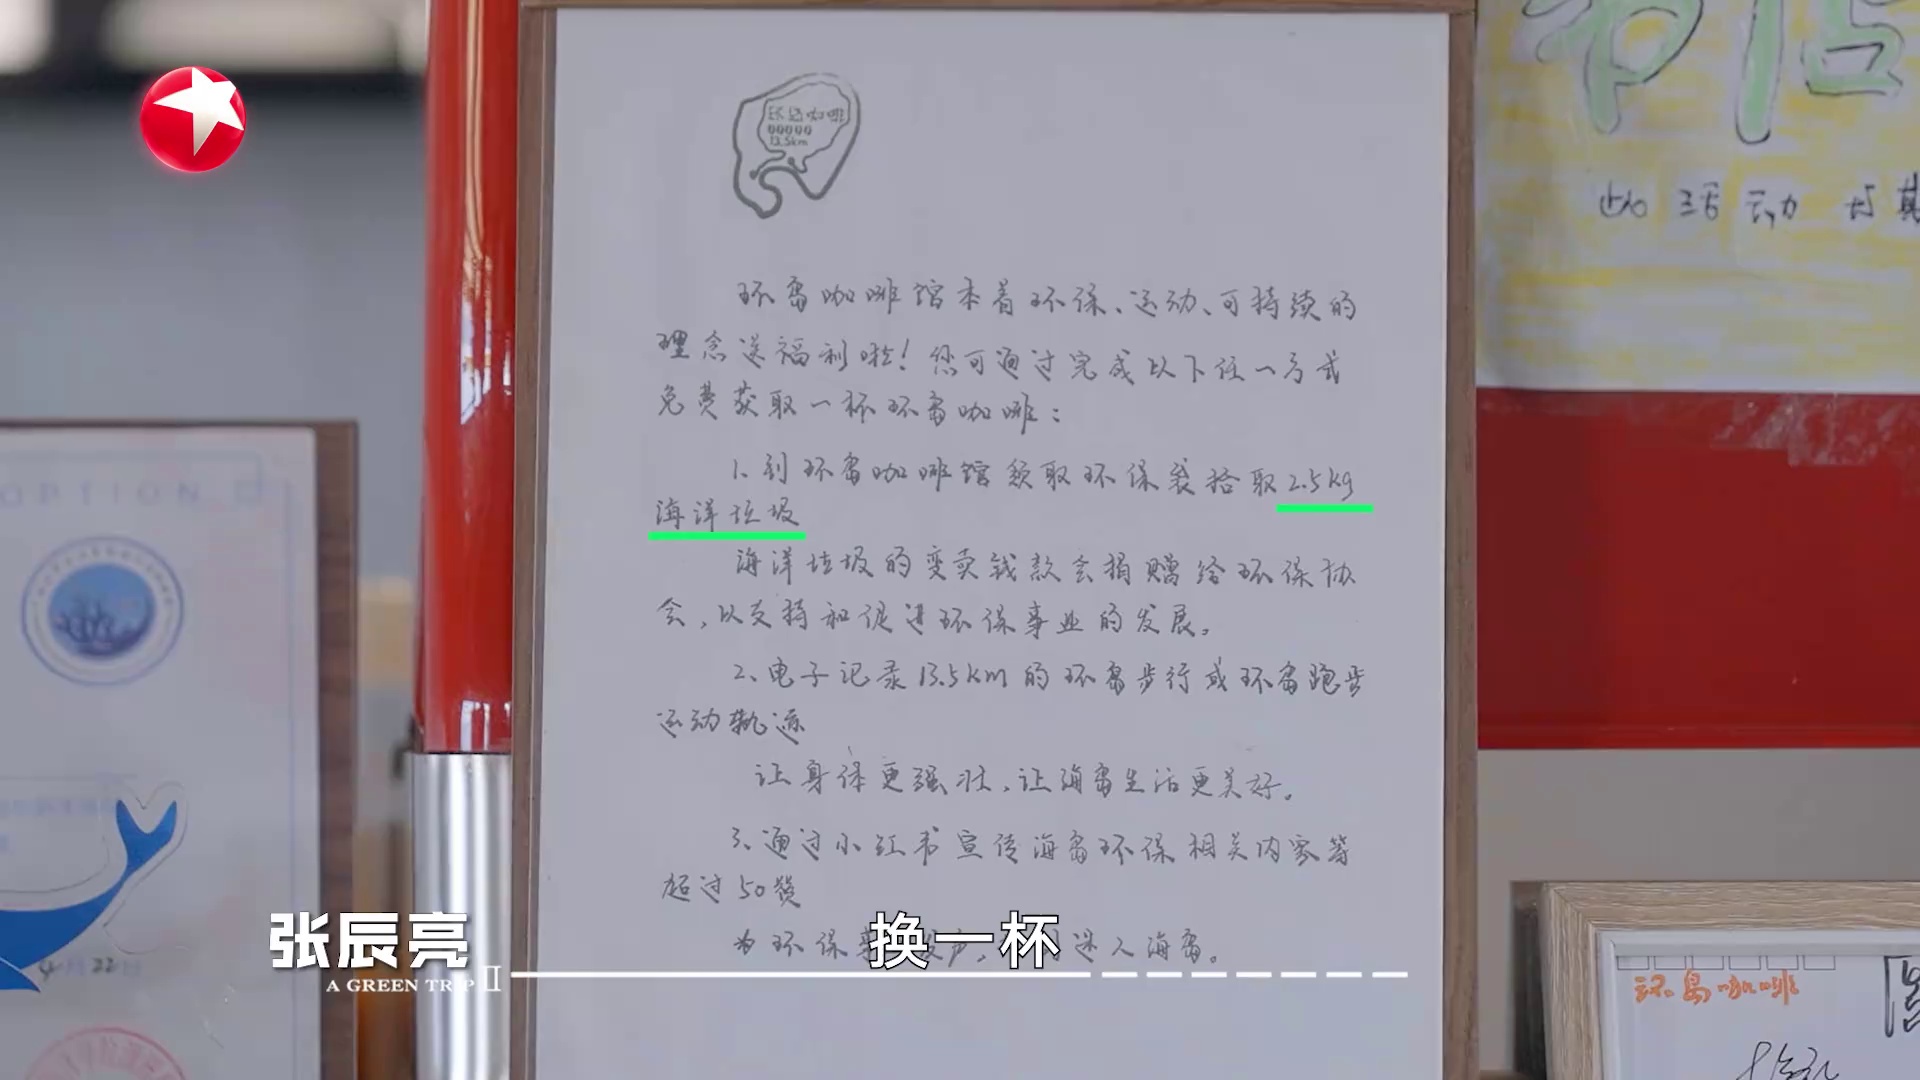 环岛咖啡
13.5km
书店
活动
环岛咖啡馆本着环保、运动、可持续的
理念送福利啦！您可通过完成以下任一方式
免费获取一杯环岛咖啡：
1、到环岛咖啡馆领取环保袋拾取2.5kg
海洋垃圾
海洋垃圾的变卖钱款会捐赠给环保协
会，以支持和促进环保事业的发展。
2、电子记录13.5km的环岛步行或环岛跑步
运动轨迹
让身体更强壮，让海岛生活更美好。
3、通过小红书宣传海岛环保相关内容等
超过50赞
为环保 人海岛。
OPTION
4 22
张辰亮
换一杯
A GREEN TRIP II
环岛咖啡